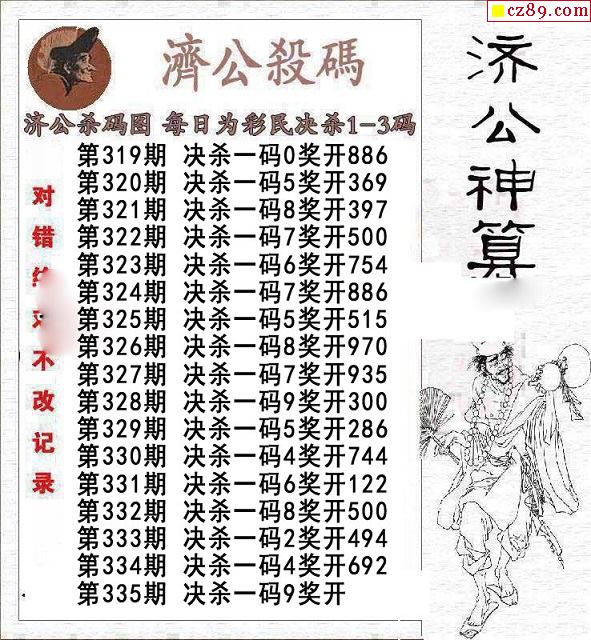 cz89.com
濟公殺碼
济公杀码图 每日为彩民决杀1-3码
第319期 决杀一码0奖开886
第320期 决杀一码5奖开369
第321期 决杀一码8奖开397
第322期 决杀一码7奖开500
第323期 决杀一码6奖开754
第324期 决杀一码7奖开886
第325期 决杀一码5奖开515
第326期 决杀一码8奖开970
第327期 决杀一码7奖开935
第328期 决杀一码9奖开300
第329期 决杀一码5奖开286
第330期 决杀一码4奖开744
第331期 决杀一码6奖开122
第332期 决杀一码8奖开500
第333期 决杀一码2奖开494
第334期 决杀一码4奖开692
第335期 决杀一码9奖开
对错不改记录
济公神算